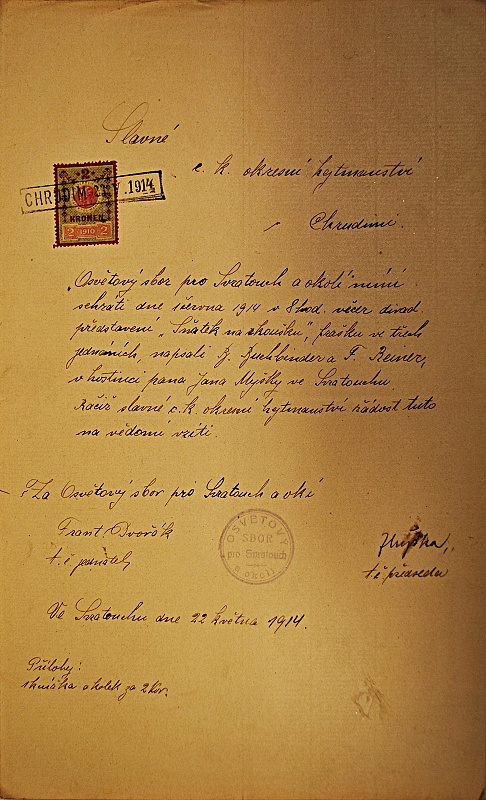 Slavné
c. k. okresní hejtmanství
Chrudimi.
CHRUDIM V. 1914
2
KRONEN
2 1910 2
„Osvětový sbor pro Svratouch a okolí" míní
sehráti dne června 1914 v 8 hod. večer divad.
představení „Sňatek na zkoušku", frašku ve třech
jednáních, napsali B. Buchbinder a F. Reiner,
v hostinci pana Jana Myšky ve Svratouchu.
Račiž slavné c. k. okresní hejtmanství žádost tuto
na vědomí vzíti.
Za Osvětový sbor pro Svratouch a okolí
Frant. Dvořák
t. č. jednatel,
OSVĚTOVÝ
SBOR
pro Svratouch
a okolí
t. č. předseda
Ve Svratouchu dne 22 května 1914.
Přílohy:
a kolek za 2 kor.